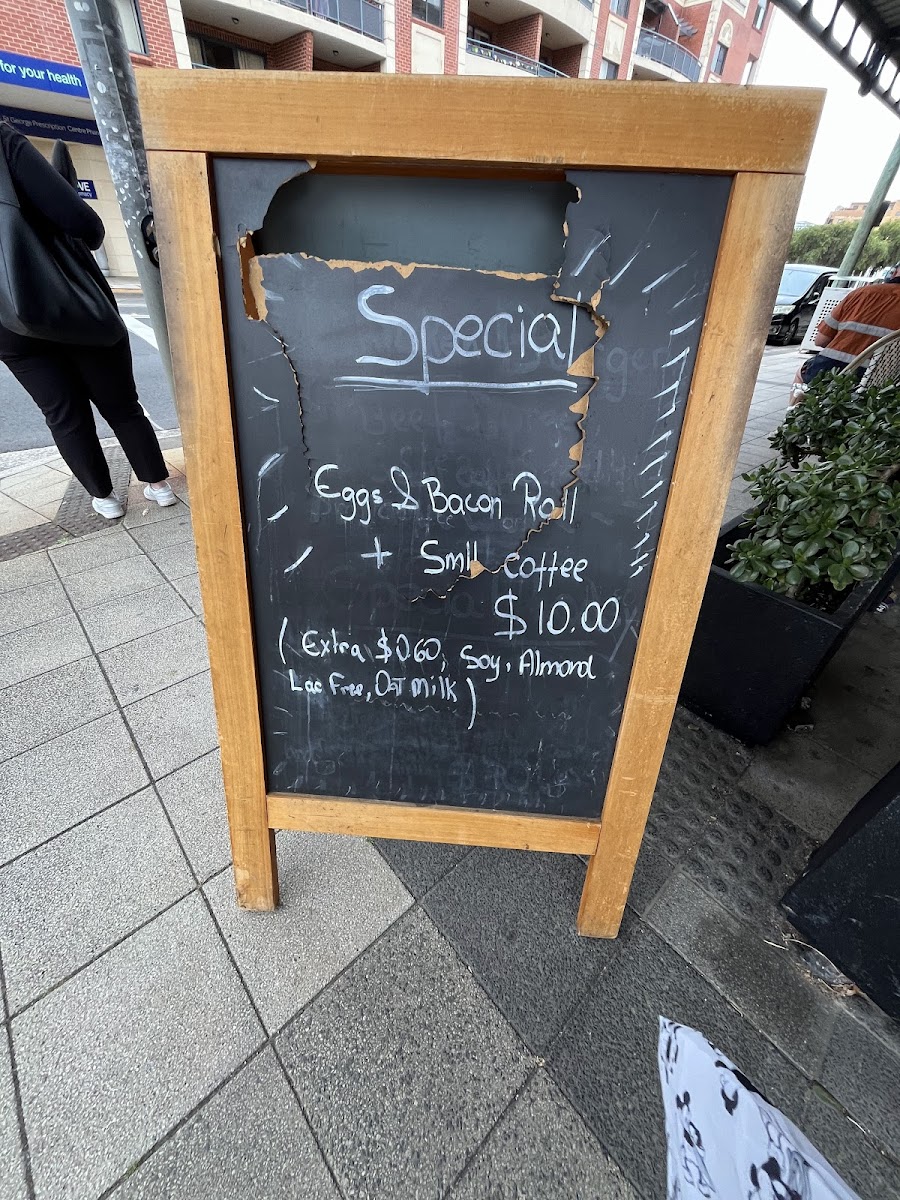 for your health
St George Prescription Centre
Special
Eggs & Bacon Roll
+ Smll coffee
$10.00
(Extra $0.60, Soy, Almond
Lac Free, Oat Milk)